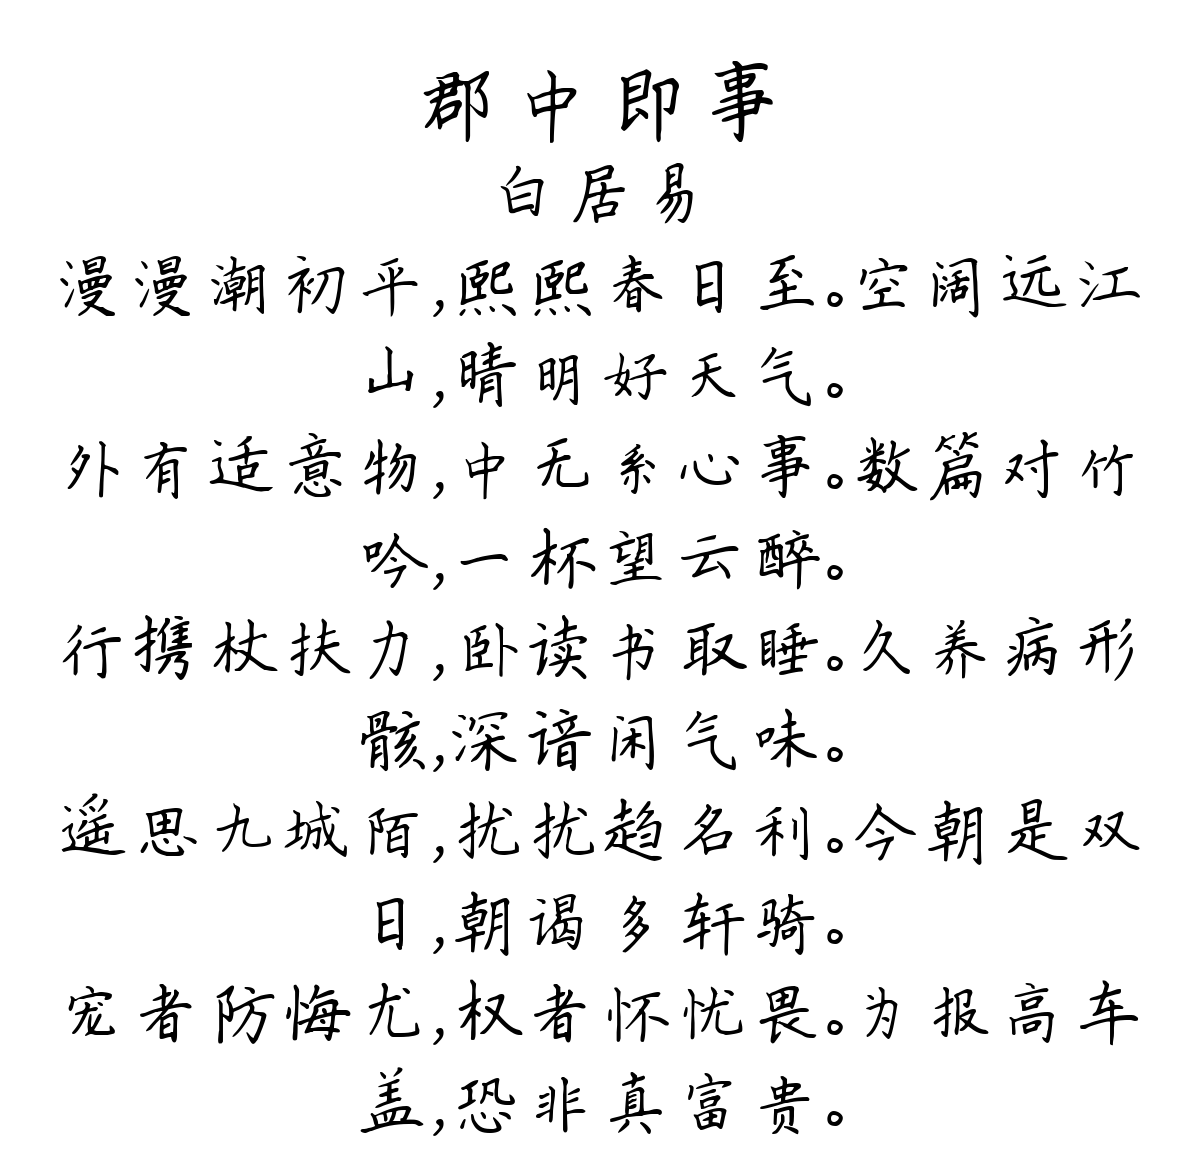 郡中即事
白居易
漫漫潮初平,熙熙春日至。空阔远江
山,晴明好天气。
外有适意物,中无系心事。数篇对竹
吟,一杯望云醉。
行携杖扶力,卧读书取睡。久养病形
骸,深谙闲气味。
遥思九城陌,扰扰趋名利。今朝是双
日,朝谒多轩骑。
宠者防悔尤,权者怀忧畏。为报高车
盖,恐非真富贵。